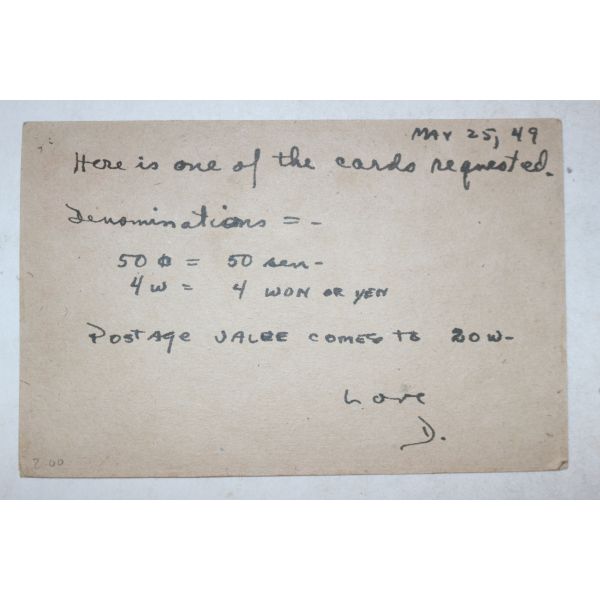 MAY 25, 49
Here is one of the cards requested.
Denominations = -
50 ¢ = 50 sen -
4 W = 4 WON OR YEN
POSTAGE VALUE COMES TO 20 W-
Love
D.
2.00